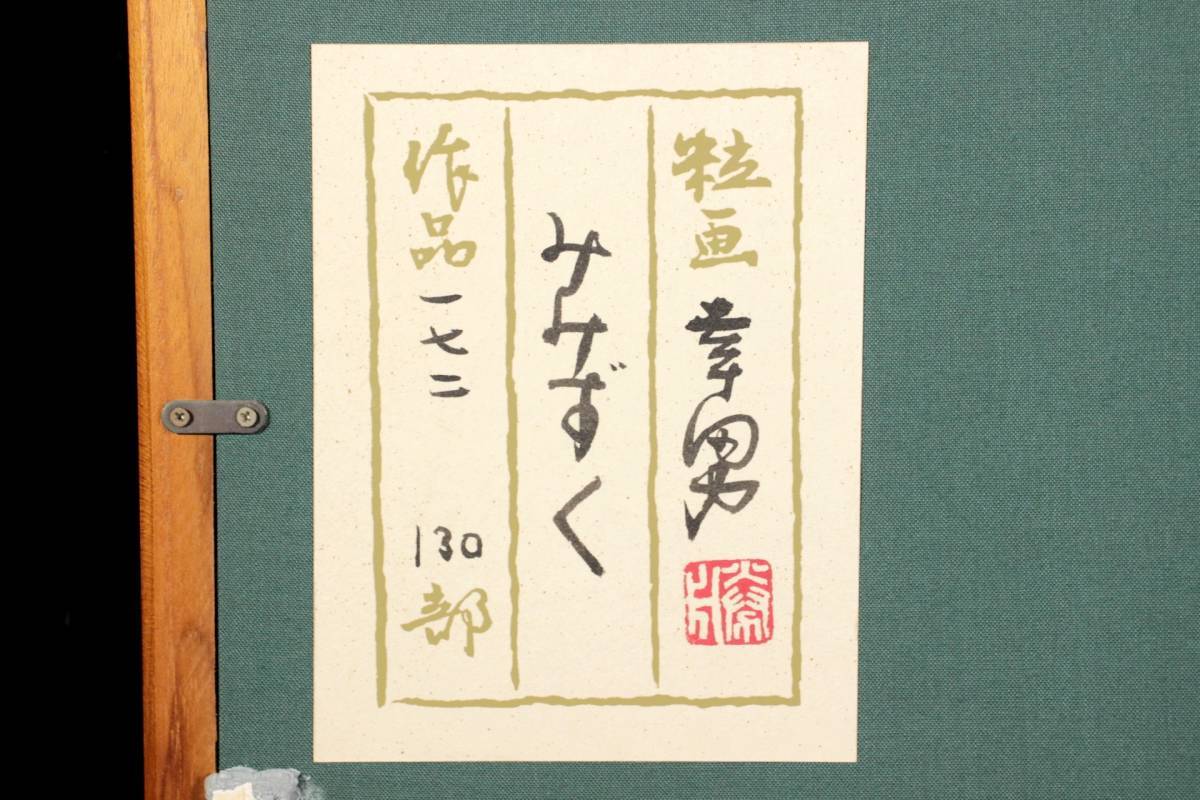 粒画 幸男
みみずく
作品 一七二 130部